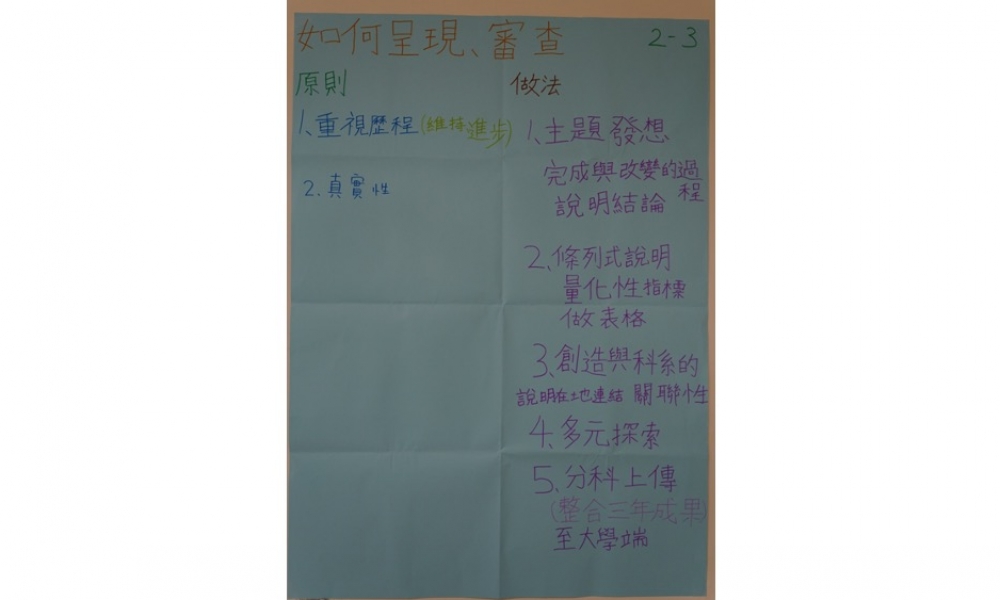 如何呈現、審查
2-3
原則
1、重視歷程(維持進步)
2、真實性
做法
1、主題發想
完成與改變的過程
說明結論
2、條列式說明
量化性指標
做表格
3、創造與科系的
關聯性
說明在地連結
4、多元探索
5、分科上傳
(整合三年成果)
至大學端